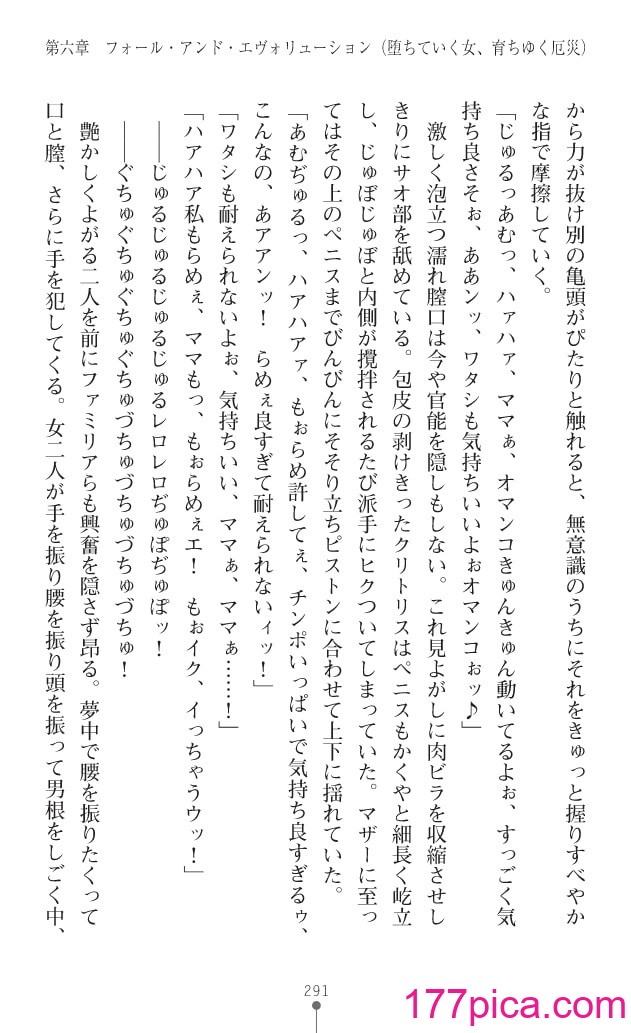 第六章　フォール・アンド・エヴォリューション（堕ちていく女、育ちゆく厄災）
から力が抜け別の亀頭がぴたりと触れると、無意識のうちにそれをきゅっと握りすべやか
な指で摩擦していく。
「じゅるっあむっ、ハァハァ、ママぁ、オマンコきゅんきゅん動いてるよぉ、すっごく気
持ち良さそぉ、ああンッ、ワタシも気持ちいいよぉオマンコぉッ♪」
激しく泡立つ濡れ膣口は今や官能を隠しもしない。これ見よがしに肉ビラを収縮させし
きりにサオ部を舐めている。包皮の剥けきったクリトリスはペニスもかくやと細長く屹立
し、じゅぽじゅぽと内側が攪拌されるたび派手にヒクついてしまっていた。マザーに至っ
てはその上のペニスまでびんびんにそそり立ちピストンに合わせて上下に揺れていた。
「あむぢゅるっ、ハアハアァ、もぉらめ許してぇ、チンポいっぱいで気持ち良すぎるゥ、
こんなの、あアアンッ！　らめぇ良すぎて耐えられないィッ！」
「ワタシも耐えられないよぉ、気持ちいい、ママぁ、ママぁ……！」
「ハアハア私もらめぇ、ママもっ、もぉらめぇエ！　もぉイク、イっちゃうウッ！」
――じゅるじゅるじゅるじゅるレロレロぢゅぽぢゅぽッ！
――ぐちゅぐちゅぐちゅぐちゅづちゅづちゅづちゅづちゅ！
艶かしくよがる二人を前にファミリアらも興奮を隠さず昂る。夢中で腰を振りたくって
口と膣、さらに手を犯してくる。女二人が手を振り腰を振り頭を振って男根をしごく中、
291
177pica.com